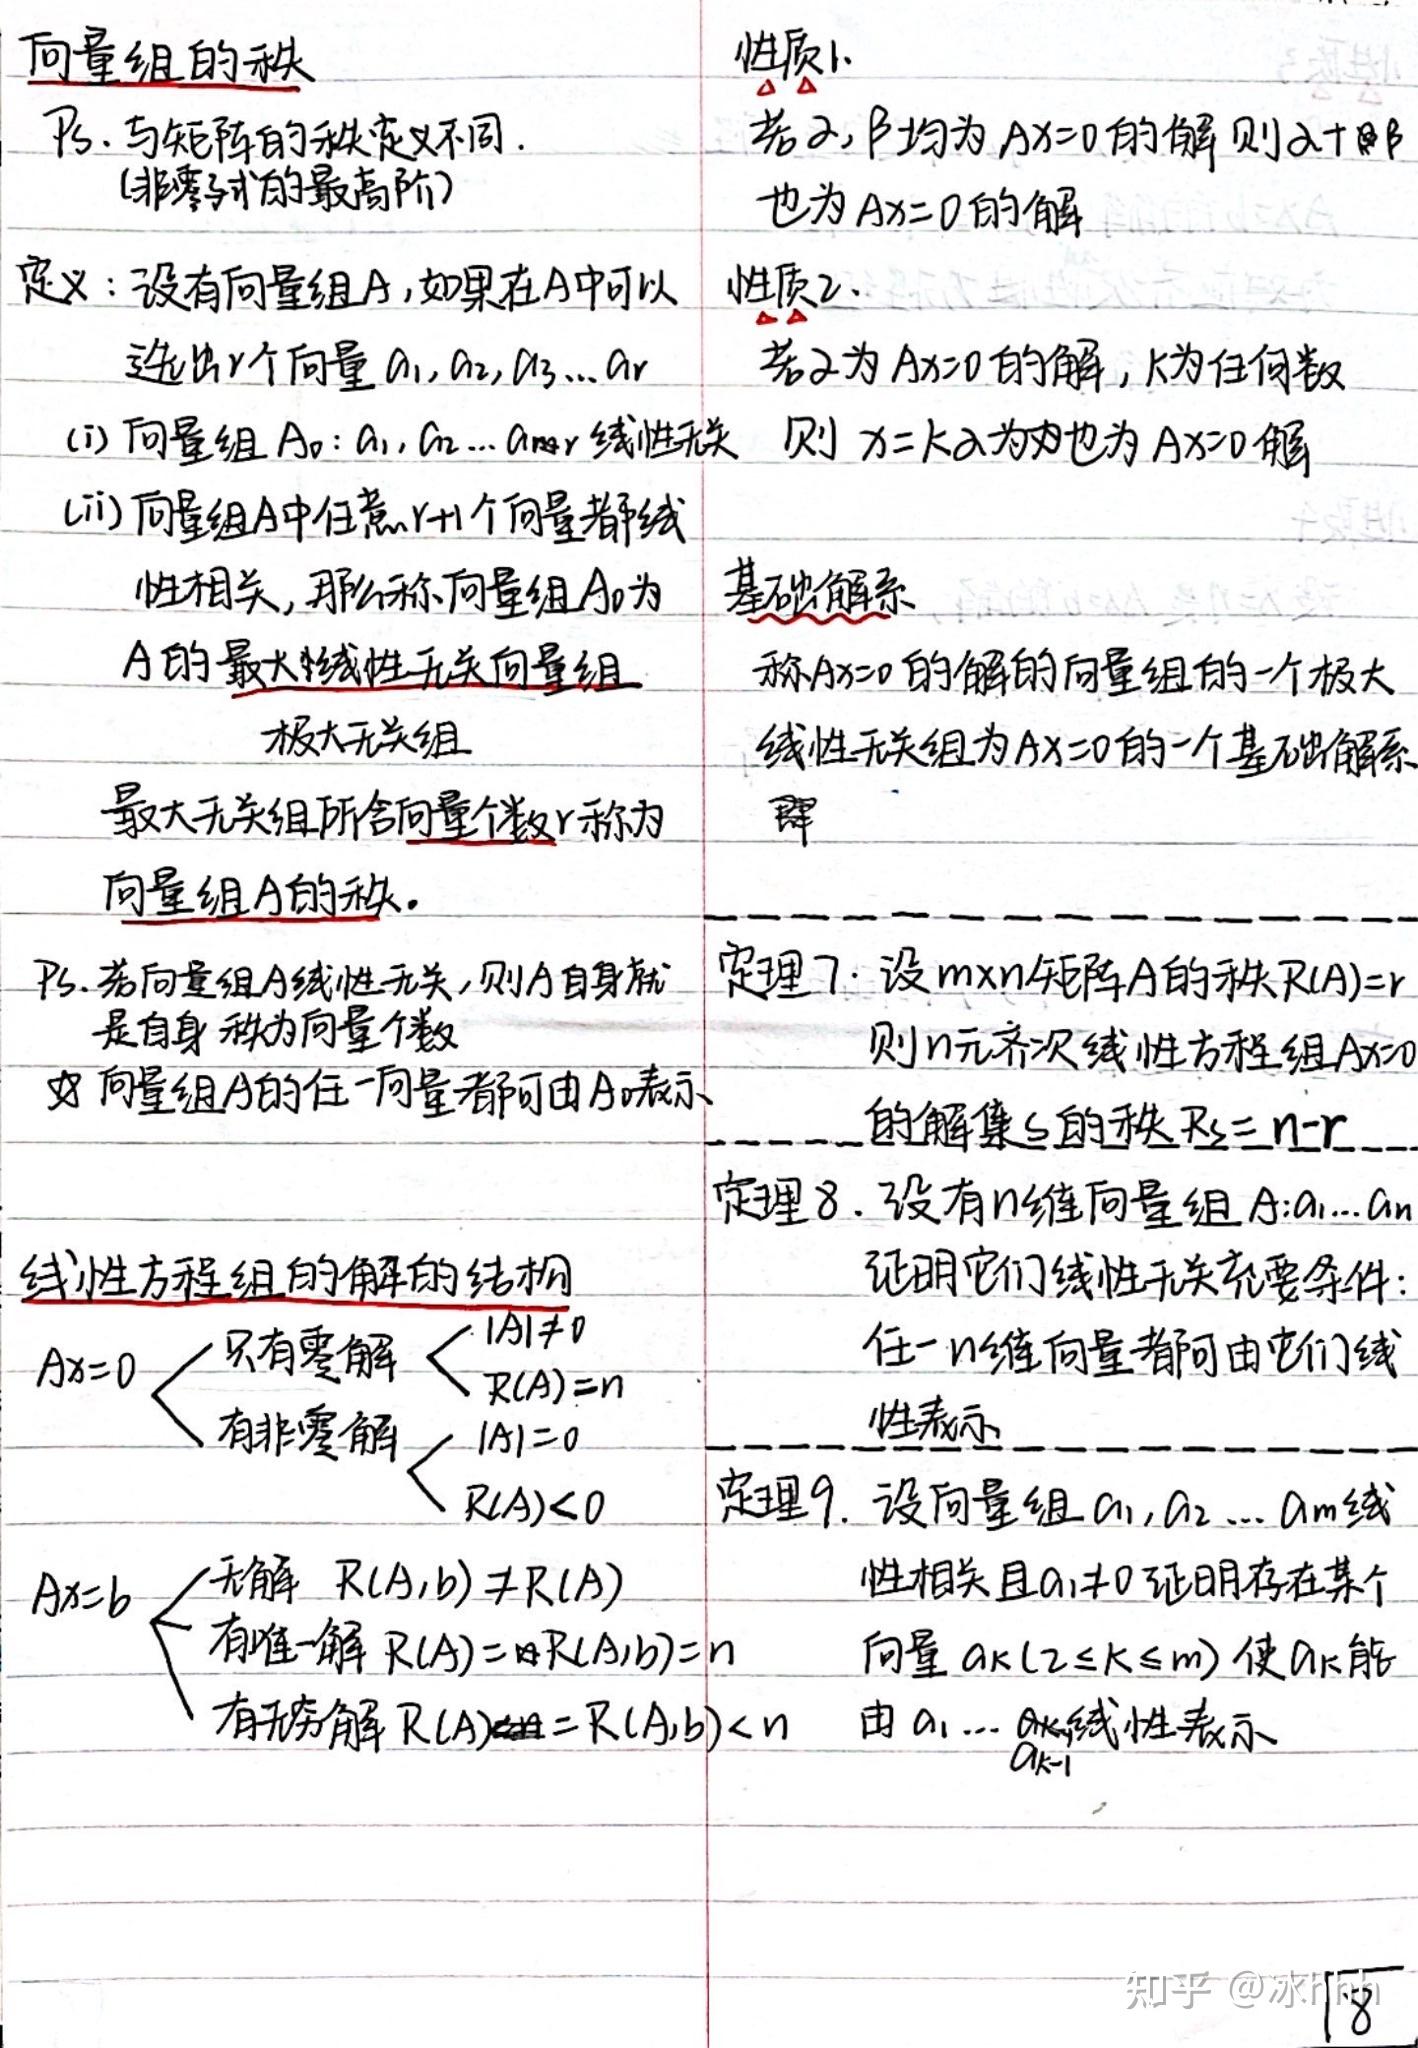 向量组的秩
Ps. 与矩阵的秩定义不同.
(非零子式的最高阶)
定义: 设有向量组A,如果在A中可以
选出r个向量 a₁, a₂, a₃…ar
(i) 向量组 A₀: a₁, a₂…ar 线性无关
(ii) 向量组A中任意r+1个向量都线
性相关,那么称向量组A₀为
A的最大线性无关向量组
极大无关组
最大无关组所含向量个数r称为
向量组A的秩。
Ps. 若向量组A线性无关,则A自身就
是自身 秩为向量个数
向量组A的任一向量都可由A₀表示
线性方程组的解的结构
Ax=0
只有零解
|A|≠0
R(A)=n
有非零解
|A|=0
R(A)<0
Ax=b
无解 R(A,b)≠R(A)
有唯一解 R(A)=R(A,b)=n
有无穷解 R(A)=R(A,b)<n
性质1.
若α,β均为Ax=0的解 则α+β
也为Ax=0的解
性质2.
若α为Ax=0的解, k为任何数
则 x=kα为也为Ax=0解
基础解系
称Ax=0的解的向量组的一个极大
线性无关组为Ax=0的一个基础解系
定理7. 设m×n矩阵A的秩R(A)=r
则n元齐次线性方程组Ax=0
的解集S的秩Rs=n-r
定理8. 设有n维向量组A:a₁…an
证明它们线性无关充要条件:
任一n维向量都可由它们线
性表示
定理9. 设向量组 a₁, a₂ … am线
性相关且a₁≠0 证明存在某个
向量 ak(2≤k≤m) 使ak能
由a₁…线性表示
ak-1
知乎 @冰hhh
18